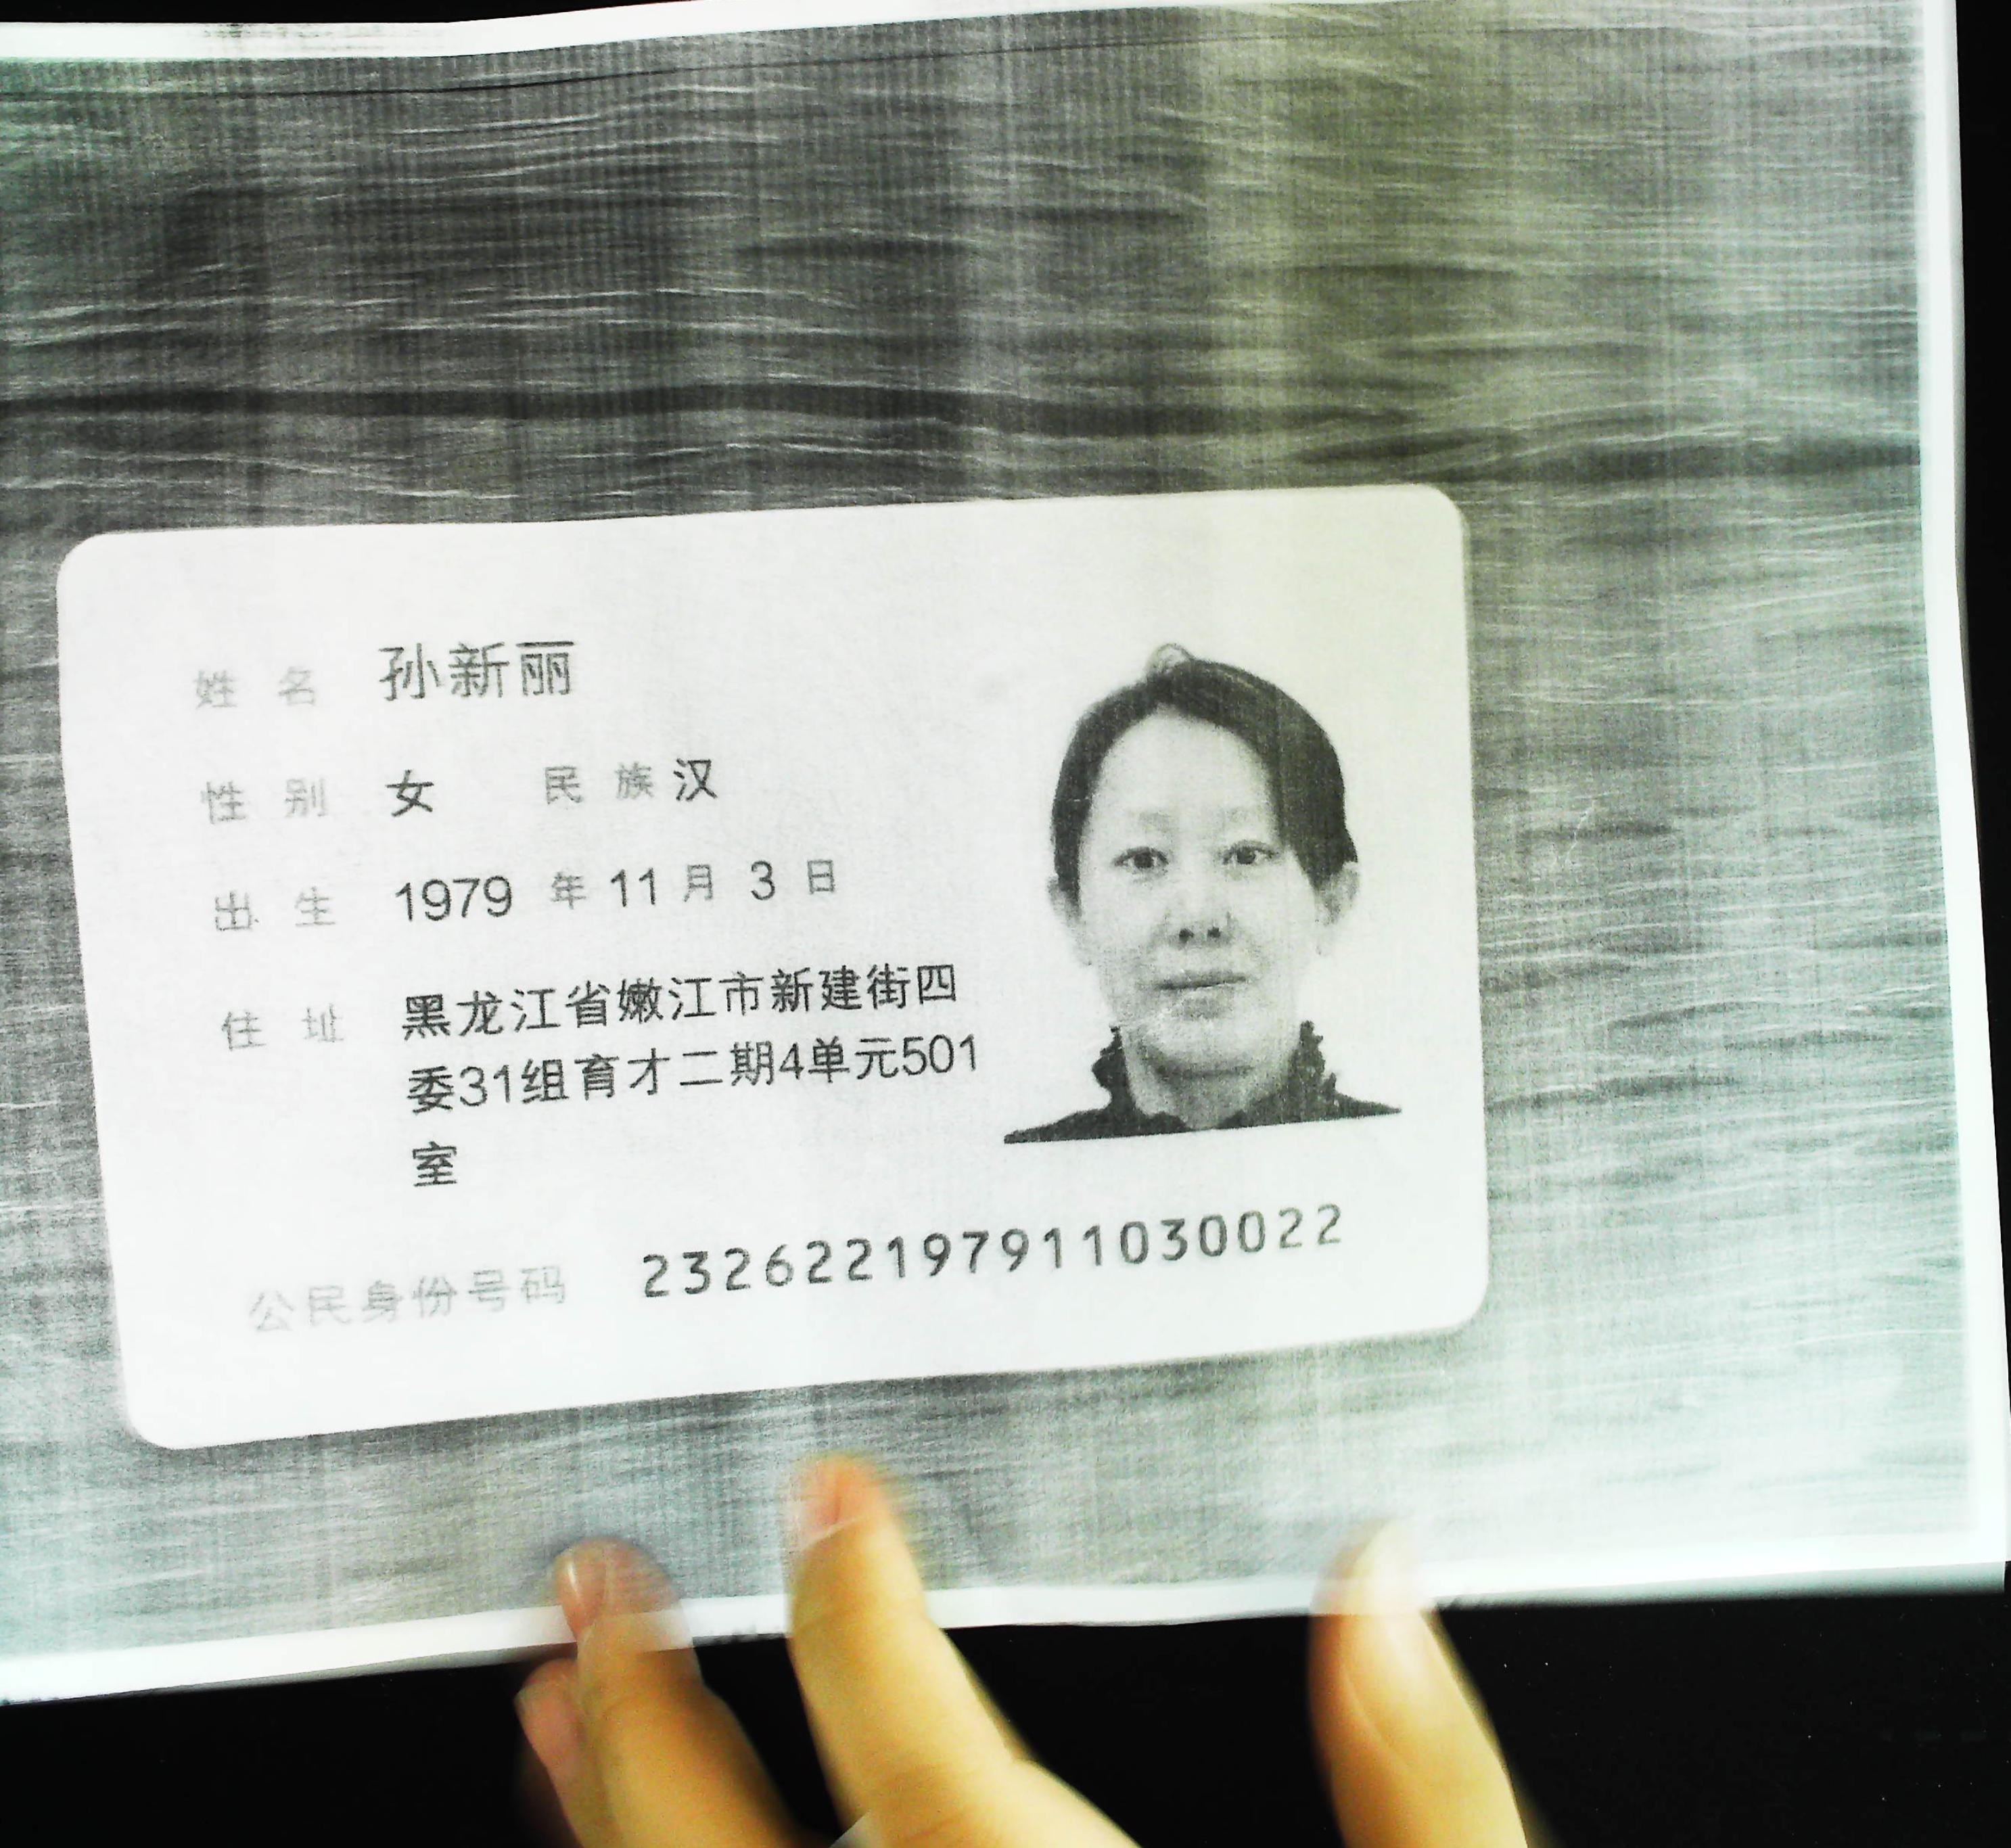 姓名 孙新丽
性别 女 民族 汉
出生 1979 年 11 月 3 日
住址 黑龙江省嫩江市新建街四
委31组育才二期4单元501
室
公民身份号码 232622197911030022